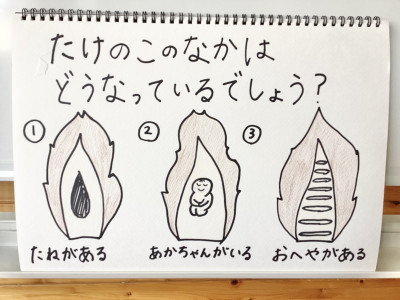 たけのこのなかは
どうなっているでしょう?
① ② ③
たねがある あかちゃんがいる おへやがある